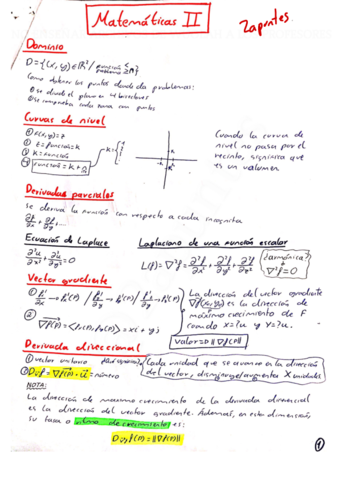 Matemáticas II
Zapuntes
Dominio
D={(x,y)∈R²/
se divide el plano en 4 bisectores
se comprueba cada zona con puntos
Curvas de nivel
① F(x,y)=z
② z=función=k
③ k=función
④ función=k+
Cuando la curva de
nivel no pasa por el
recinto, significa que
es un volumen
Derivadas parciales
se deriva la función con respecto a cada incognita
∂f/∂x + ∂f/∂y + ...
Ecuación de Laplace
∂²u/∂x² + ∂²u/∂y² = 0
Laplaciano de una función escalar
L(f)=∇²f= ∂²f/∂x² + ∂²f/∂y² + ∂²f/∂z²
¿armónica?
∇²f=0
Vector gradiente
① →f'(P)
② ∇f(P)=
La dirección del vector gradiente
∇f(x₀,y₀) es la dirección de
máximo crecimiento de F
cuando x=?u y Y=?u.
Valor=D||∇f(P)||
Derivada direccional
① vector unitario
② Dᵤf=∇f(P)·u=número
Cada unidad que se avanza en la dirección
del vector, disminuye/aumenta X unidades
NOTA:
La dirección de maximo crecimiento de la derivada direccional
es la dirección del vector gradiente. Además, en esta dimensión
su tasa o ritmo de crecimiento es:
Dᵤf(P)=||∇f(P)||
1